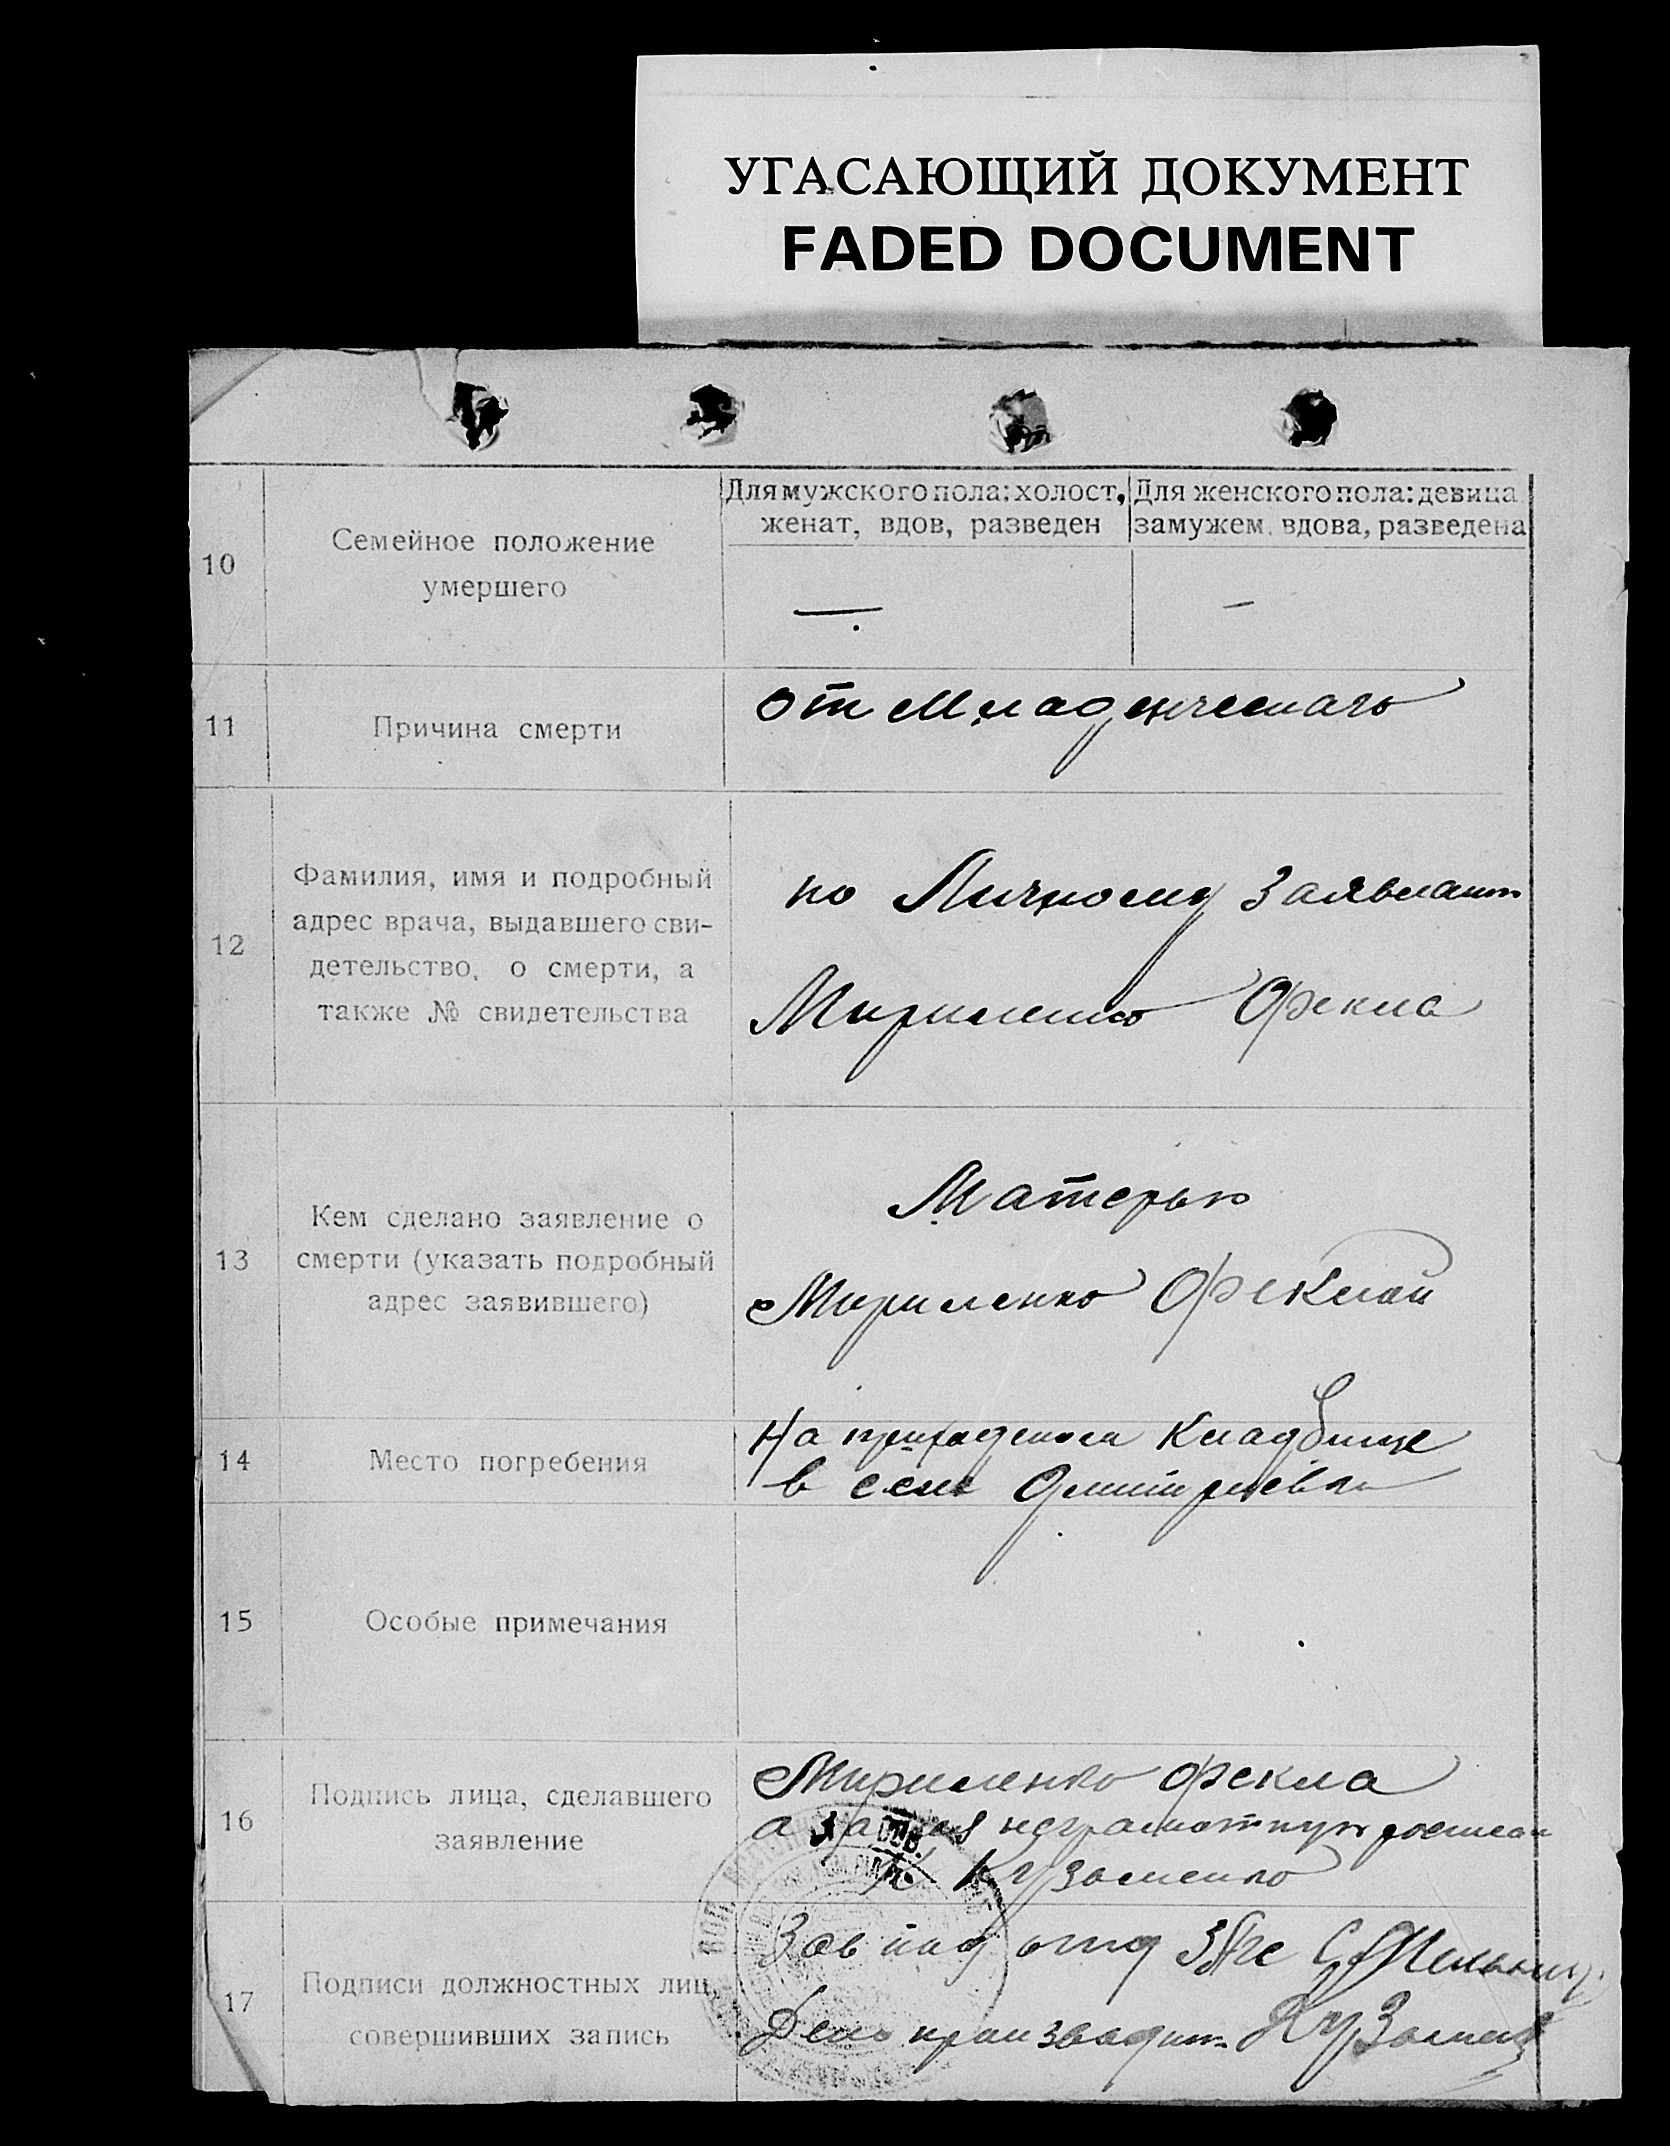 УГАСАЮЩИЙ ДОКУМЕНТ
FADED DOCUMENT
10
Семейное положение
умершего
Для мужского пола: холост,
женат, вдов, разведен
Для женского пола: девица
замужем, вдова, разведена
—
—
11
Причина смерти
от Младенческаго
12
Фамилия, имя и подробный
адрес врача, выдавшего сви-
детельство, о смерти, а
также № свидетельства
по Личному
Мириленко Фекла
13
Кем сделано заявление о
смерти (указать подробный
адрес заявившего)
Матерью
Мириленко Феклой
14
Место погребения
На Кладбище
в селе
15
Особые примечания
16
Подпись лица, сделавшего
заявление
Мириленко Фекла
а неграмотную
Кузоменко
17
Подписи должностных лиц,
совершивших запись
Зав под отд
Дело производит.